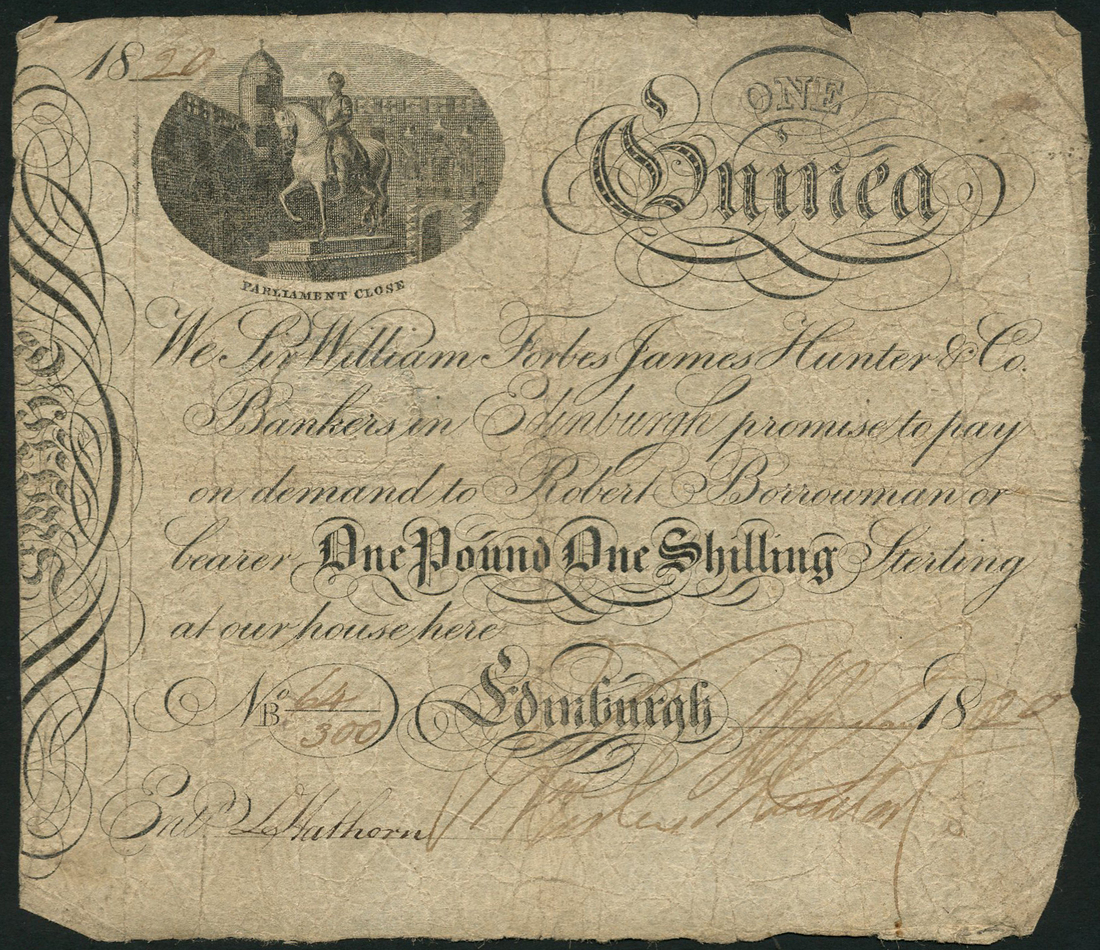 18 20
ONE
Guinea
PARLIAMENT CLOSE
We Sir William Forbes James Hunter & Co.
Bankers in Edinburgh promise to pay
on demand to Robert Borrowman or
bearer One Pound One Shilling Sterling
at our house here
No. B 64/300 Edinburgh 1820
Entd. L Hathorn